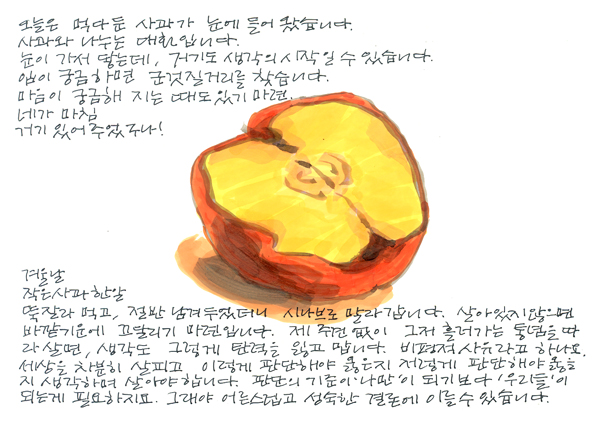 오늘은 먹다 둔 사과가 눈에 들어 왔습니다.
사과와 나누는 대화입니다.
눈이 가서 닿는데, 거기도 생각의 시작일 수 있습니다.
입이 궁금하면 군것질거리를 찾습니다.
마음이 궁금해 지는 때도 있기 마련.
네가 마침
거기 있어 주었구나!
겨울날
작은 사과 한 알
뚝 잘라 먹고, 절반 남겨 두었더니 시나브로 말라 갑니다. 살아있지 않으면
바깥 기운에 끄달리기 마련입니다. 제 주견 없이 그저 흘러가는 통념을 따
라 살면, 생각도 그렇게 탄력을 잃고 맙니다. 비평적 사유라고 하나요.
세상을 차분히 살피고 이렇게 판단해야 옳은지 저렇게 판단해야 옳은
지 생각하며 살아야 합니다. 판단의 기준이 '나만'이 되기보다 '우리들'이
되는게 필요하지요. 그래야 어른스럽고 성숙한 결론에 이를 수 있습니다.